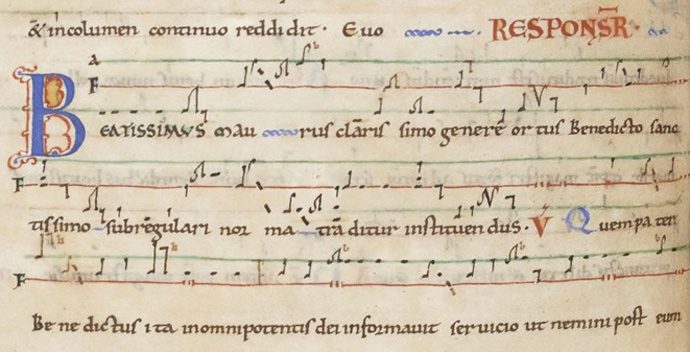 & incolumen continuo reddidit. Evo RESPONSR.
BEATISSIMUS Mau rus claris simo genere or tus Benedicto sanc
tissimo subregulari nor ma tradi tur instituen dus. V Quem pa ter
Be ne dictus ita in omnipotentis dei informavit ser vicio ut nemini post eum